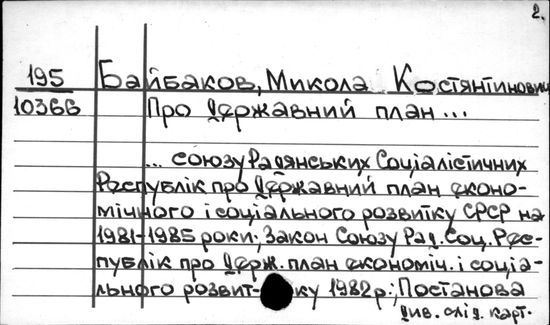 2.
195 Байбаков, Микола Костянтинович
10366 Про Державний план...
... Союзу Радянських Соціалістичних
Республік про Державний план еконо-
мічного і соціального розвитку СРСР на
1981-1985 роки; Закон Союзу Рад. Соц. Рес-
публік про Держ. план економіч. і соціа-
льного розвит-ку 1982р.; Постанова
див. слід. карт.